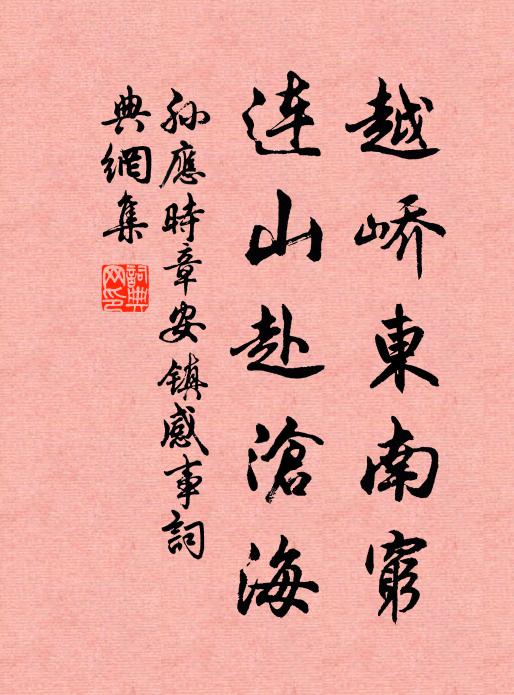 越嶠東南窮
連山赴滄海
孫應時章安鎮感事詞
典網集
詞典
网印